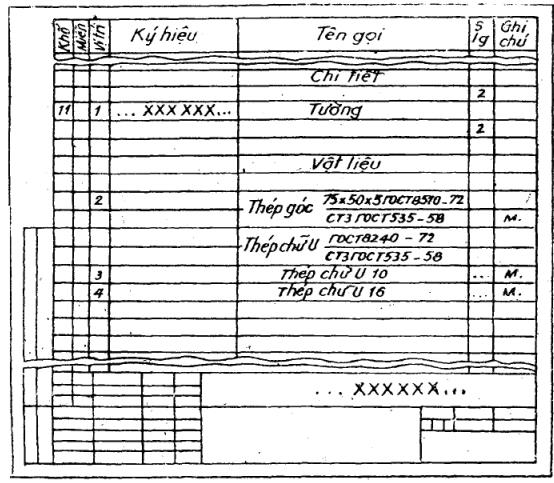 Khổ Miền Vị trí Ký hiệu Tên gọi S lg Ghi chú
Chi tiết
2
11 1 ... XXX XXX... Tường
2
Vật liệu
2 Thép góc 75x50x5 ГОСТ8510-72
СТ3 ГОСТ535-58 M.
Thép chữ U ГОСТ8240 - 72
СТ3 ГОСТ535-58
3 Thép chữ U 10 ... M.
4 Thép chữ U 16 ... M.
... XXXXXX...